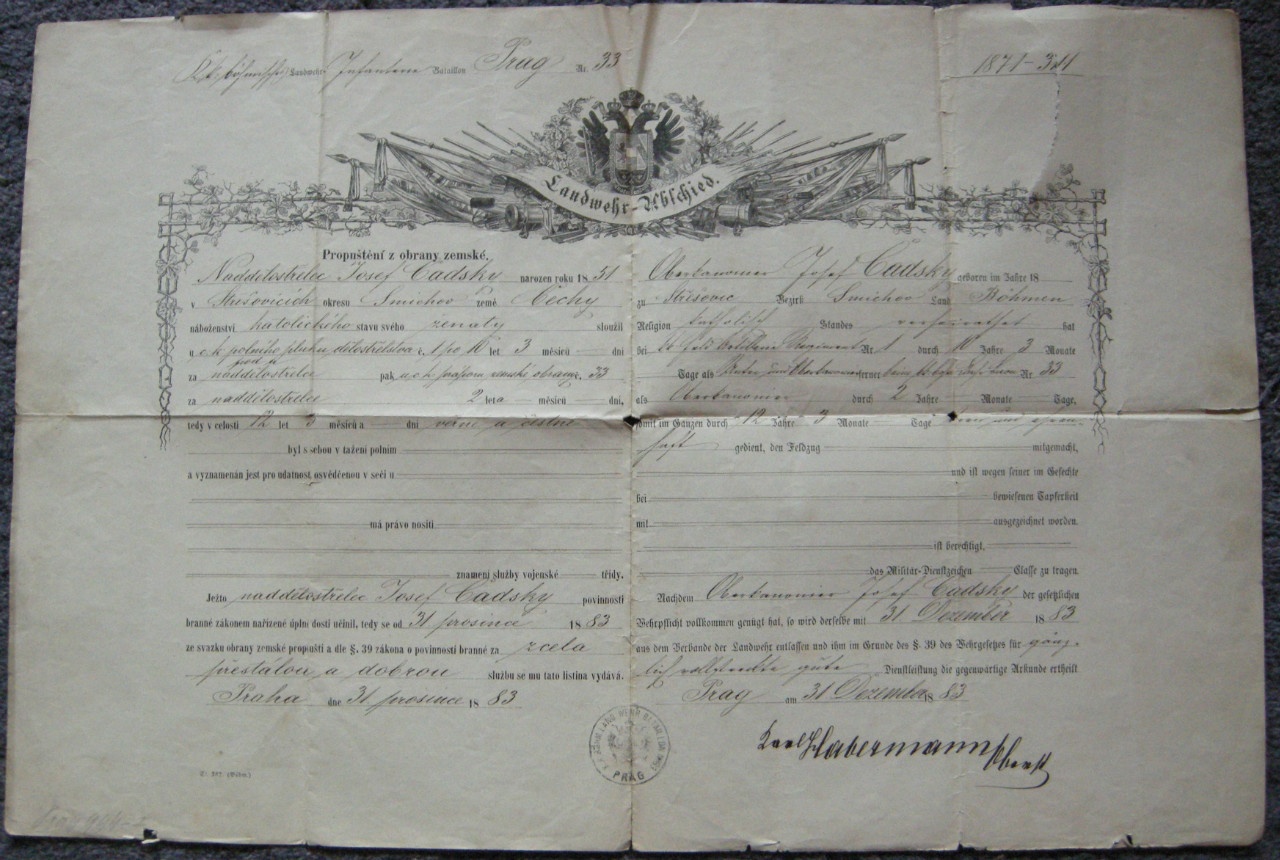 K.k. böhmisches Landwehr Infanterie Bataillon Prag Nr. 33
1871-
Landwehr-Abschied.
Propuštění z obrany zemské.
Naddělostřelec Josef Čadsky narozen roku 1851
v Střešovicích okresu Smichov země Čechy
náboženství katolického stavu svého ženatý sloužil
u c.k. polního pluku dělostřelstva č. 1 po 10 let 3 měsíců dní
za naddělostřelce pak u c.k. praporu zemské obrany č. 33
za naddělostřelce 2 leta měsíců dní,
tedy v celosti 12 let 3 měsíců a dní věrně a čestně
byl s sebou v tažení polním
a vyznamenán jest pro udatnost osvědčenou v seči u
má právo nositi
znamení služby vojenské třídy.
Ježto naddělostřelec Josef Čadsky povinnosti
branné zákonem nařízené úplni dosti učinil, tedy se od 31 prosince 1883
ze svazku obrany zemské propuští a dle §. 39 zákona o povinnosti branné za zcela
přestálou a dobrou službu se mu tato listina vydává.
Praha dne 31 prosince 1883
Oberkanonier Josef Čadsky geboren im Jahre 18
zu Střešovic Bezirk Smichov Land Böhmen
Religion katholisch Standes verheirathet hat
bei Feld Artillerie Regiment Nr. 1 durch 10 Jahre 3 Monate
Tage als Unter und Oberkanonier ferner beim Nr. 33
als Oberkanonier durch 2 Jahre Monate Tage,
somit im Ganzen durch 12 Jahre 3 Monate Tage treu und ehren-
haft gedient, den Feldzug mitgemacht,
und ist wegen seiner im Gefechte
bei bewiesenen Tapferkeit
mit ausgezeichnet worden.
ist berechtigt,
das Militär-Dienstzeichen Classe zu tragen.
Nachdem Oberkanonier Josef Čadsky der gesetzlichen
Wehrpflicht vollkommen genügt hat, so wird derselbe mit 31 Dezember 1883
aus dem Verbande der Landwehr entlassen und ihm im Grunde des §. 39 des Wehrgesetzes für gänz-
lich vollstreckte gute Dienstleistung die gegenwärtige Urkunde ertheilt
Prag am 31 Dezember 1883
PRAG
Karl Habermann Oberst